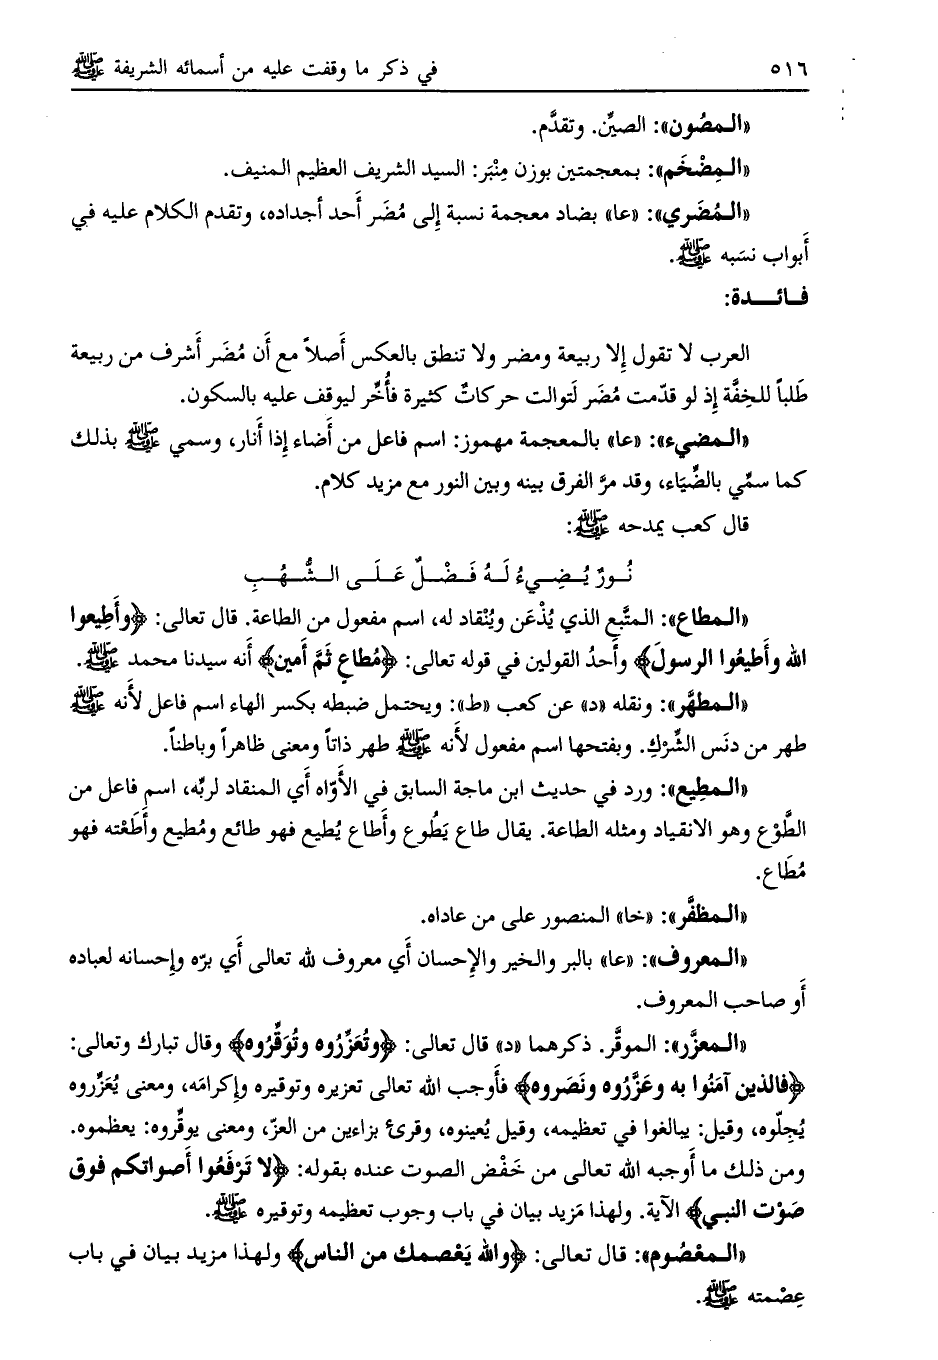 ٥١٦ في ذكر ما وقفت عليه من أسمائه الشريفة ﷺ
«المصُون»: الصيِّن. وتقدَّم.
«المِضْخَم»: بمعجمتين بوزن مِنْبَر: السيد الشريف العظيم المنيف.
«المُضَري»: «عا» بضاد معجمة نسبة إلى مُضَر أحد أجداده، وتقدم الكلام عليه في
أبواب نسَبه ﷺ.
فائدة:
العرب لا تقول إلا ربيعة ومضر ولا تنطق بالعكس أصلاً مع أن مُضَر أشرف من ربيعة
طَلباً للخِفَّة إذ لو قدّمت مُضَر لَتوالت حركاتٌ كثيرة فأُخِّر ليوقف عليه بالسكون.
«المضيء»: «عا» بالمعجمة مهموز: اسم فاعل من أضاء إذا أنار، وسمي ﷺ بذلك
كما سمِّي بالضِّيَاء، وقد مرَّ الفرق بينه وبين النور مع مزيد كلام.
قال كعب يمدحه ﷺ:
نُورٌ يُضِيءُ لَهُ فَضْلٌ عَلَى الشُّهُبِ
«المطاع»: المتَّبع الذي يُذْعَن ويُنْقاد له، اسم مفعول من الطاعة. قال تعالى: ﴿وأَطِيعوا
الله وأَطيعُوا الرسولَ﴾ وأحدُ القولين في قوله تعالى: ﴿مُطاعٍ ثَمَّ أمين﴾ أنه سيدنا محمد ﷺ.
«المطهَّر»: ونقله «د» عن كعب «ط»: ويحتمل ضبطه بكسر الهاء اسم فاعل لأنه ﷺ
طهر من دنَس الشِّرْكِ. وبفتحها اسم مفعول لأنه ﷺ طهر ذاتاً ومعنى ظاهراً وباطناً.
«المطِيع»: ورد في حديث ابن ماجة السابق في الأوّاه أي المنقاد لربِّه، اسم فاعل من
الطَّوْع وهو الانقياد ومثله الطاعة. يقال طاع يَطُوع وأَطاع يُطيع فهو طائع ومُطيع وأَطَعْته فهو
مُطَاع.
«المظفَّر»: «خا» المنصور على من عاداه.
«المعروف»: «عا» بالبر والخير والإحسان أي معروف لله تعالى أي برّه وإحسانه لعباده
أو صاحب المعروف.
«المعزَّر»: الموقَّر. ذكرهما «د» قال تعالى: ﴿وتُعَزِّرُوه وتُوَقِّرُوه﴾ وقال تبارك وتعالى:
﴿فالذين آمَنُوا به وعَزَّرُوه ونَصَروه﴾ فأَوجب الله تعالى تعزيره وتوقيره وإكرامَه، ومعنى يُعَزِّروه
يُجِلّوه، وقيل: يبالغوا في تعظيمه، وقيل يُعينوه، وقرئ بزاءين من العزّ، ومعنى يوقِّروه: يعظموه.
ومن ذلك ما أَوجبه الله تعالى من خَفْض الصوت عنده بقوله: ﴿لا تَرْفَعُوا أَصواتكم فوق
صَوْت النبي﴾ الآية. ولهذا مَزيد بيان في باب وجوب تعظيمه وتوقيره ﷺ.
«المعْصُوم»: قال تعالى: ﴿والله يَعْصمك من الناس﴾ ولهذا مزيد بيان في باب
عِصْمته ﷺ.